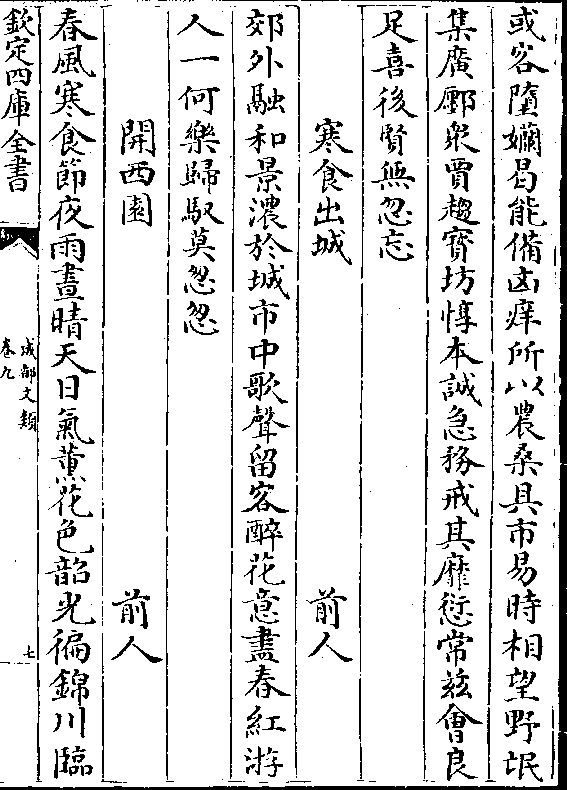 或容墮嬾曷能備凶痒所以農桑具市易時相望野氓
集廣鄽衆賈趨寳坊惇本誠急務戒其靡愆常兹㑹良
足喜後賢無忽忘
寒食出城　前人
郊外融和景濃於城市中歌聲留客醉花意盡春紅游
人一何樂歸馭莫怱怱
開西園　前人
春風寒食節夜雨晝晴天日氣薰花色韶光徧錦川臨
欽定四庫全書
成都文類
卷九
七